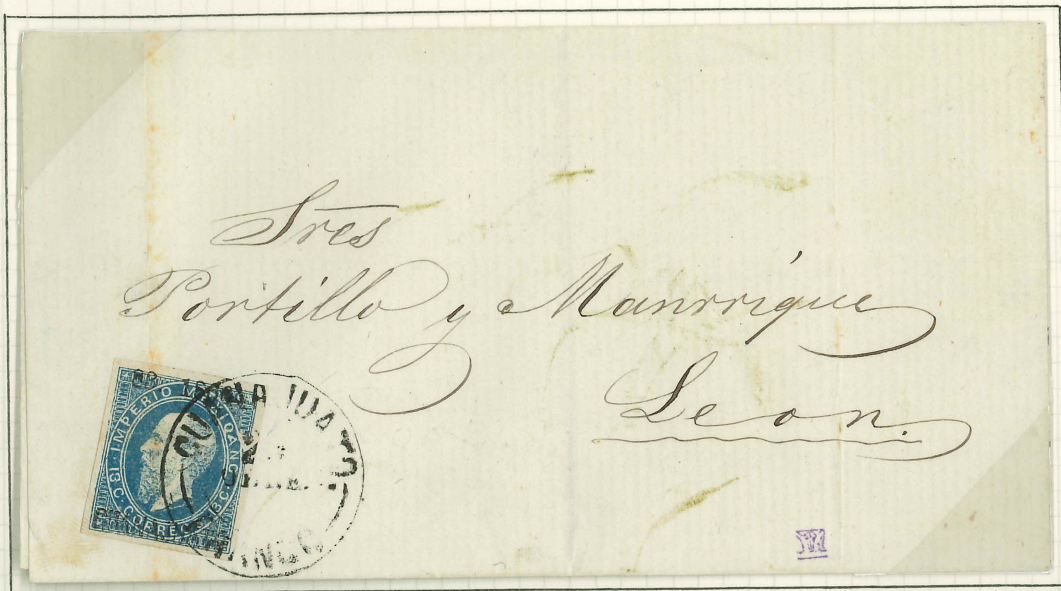 Sres
Portillo y Manrrique
Leon.
IMPERIO MEXICANO
13 C. CORREOS 13 C.
GUANAJUATO